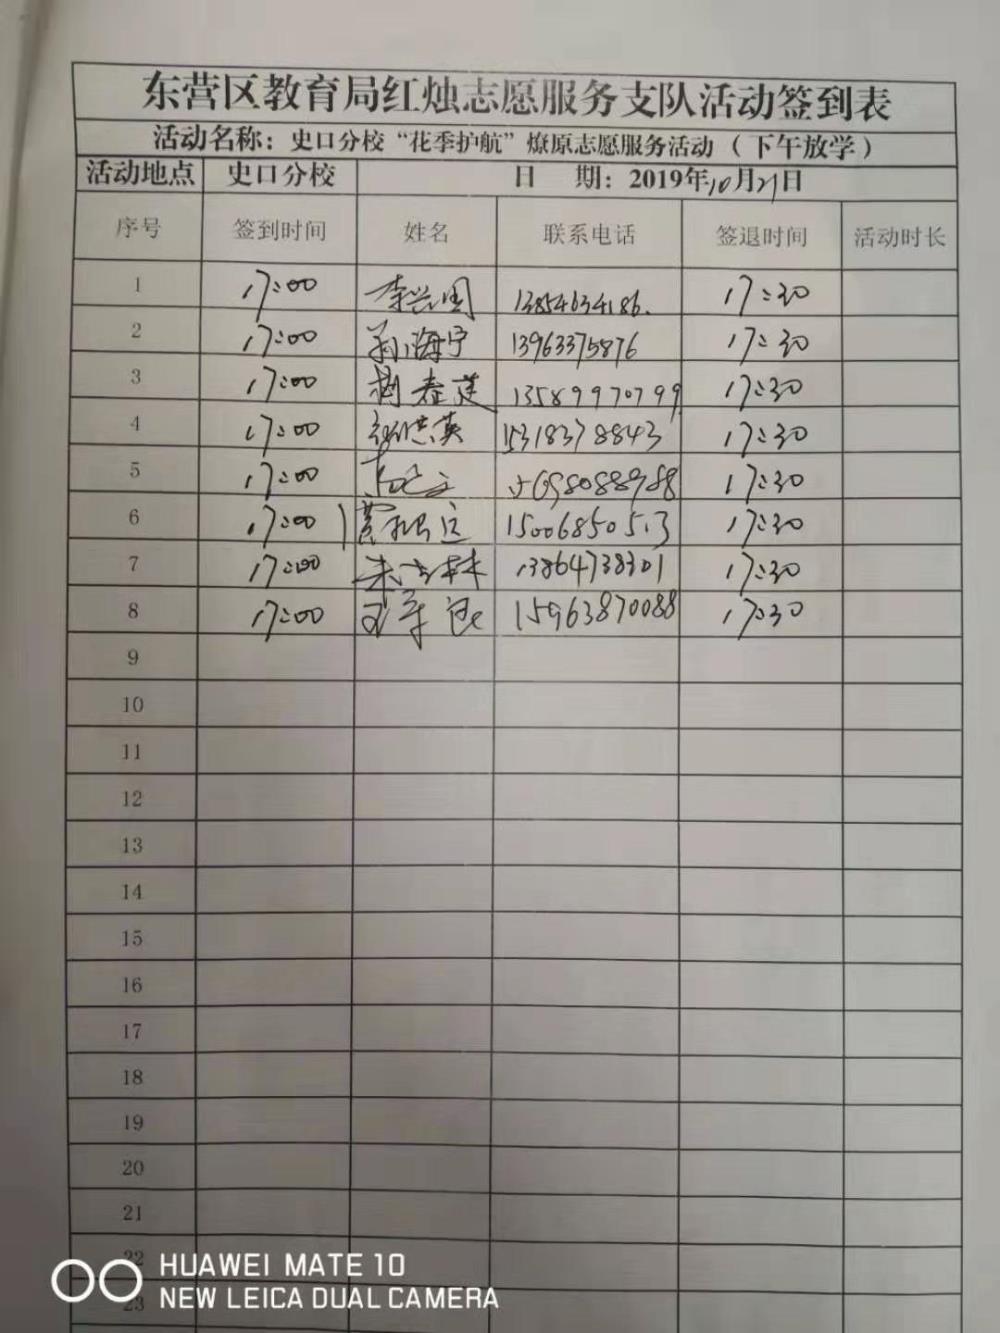 东营区教育局红烛志愿服务支队活动签到表
活动名称：史口分校“花季护航”燎原志愿服务活动（下午放学）
活动地点 史口分校 日 期：2019年10月21日
序号 签到时间 姓名 联系电话 签退时间 活动时长
1 17:00 李兴国 13854634186. 17:30
2 17:00 孙海宁 13963375876 17:30
3 17:00 春莲 13589970799 17:30
4 17:00 洪英 15318378843 17:30
5 17:00 17:30
6 17:00 15006850513 17:30
7 17:00 朱林 13864738301 17:30
8 17:00 王军 15963870088 17:30
9
10
11
12
13
14
15
16
17
18
19
20
21
22
23
HUAWEI MATE 10
NEW LEICA DUAL CAMERA